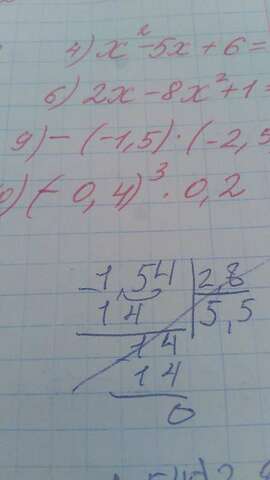 4) x² - 5x + 6 =
6) 2x - 8x² + 1 =
9) - (-1,5) · (-2,5
0) (- 0,4)³ · 0,2
- 1,54 | 2,8
14 | 5,5
- 14
14
0